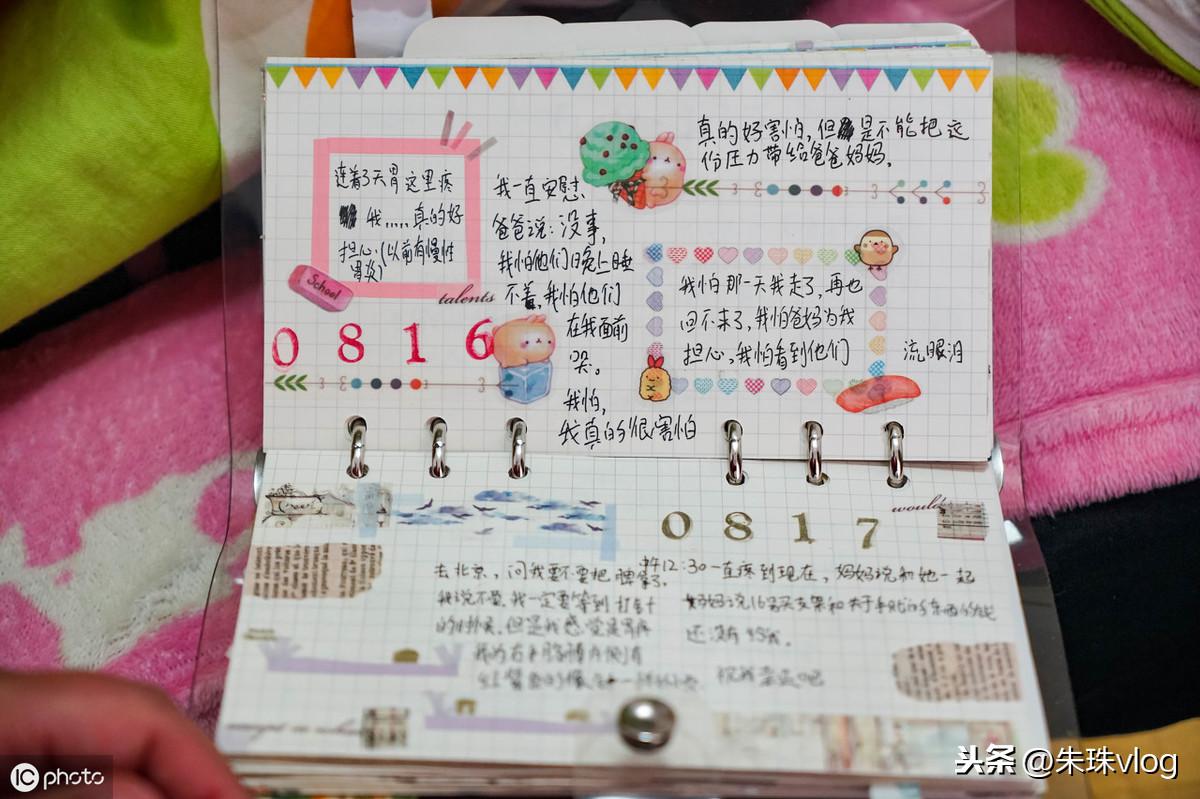 连着3天胃这里疼
我.....真的好
担心.(以前有慢性
胃炎)
School
talents
0816
我一直安慰
爸爸说:没事,
我怕他们晚上睡
不着,我怕他们
在我面前
哭。
我怕,
我真的很害怕
真的好害怕,但是不能把这
份压力带给爸爸妈妈.
我怕那一天我走了,再也
回不来了,我怕爸妈为我
担心,我怕看到他们 流眼泪
0817
would
去北京,问我要不要把脾拿了.
我说不要,我一定要等到打针
的时候.但是我感觉是胃疼
我的右
12:30一直疼到现在,妈妈说和她一起
妈妈说16号买支架和关于
还没有
祝我幸运吧
IC photo
头条@朱珠vlog